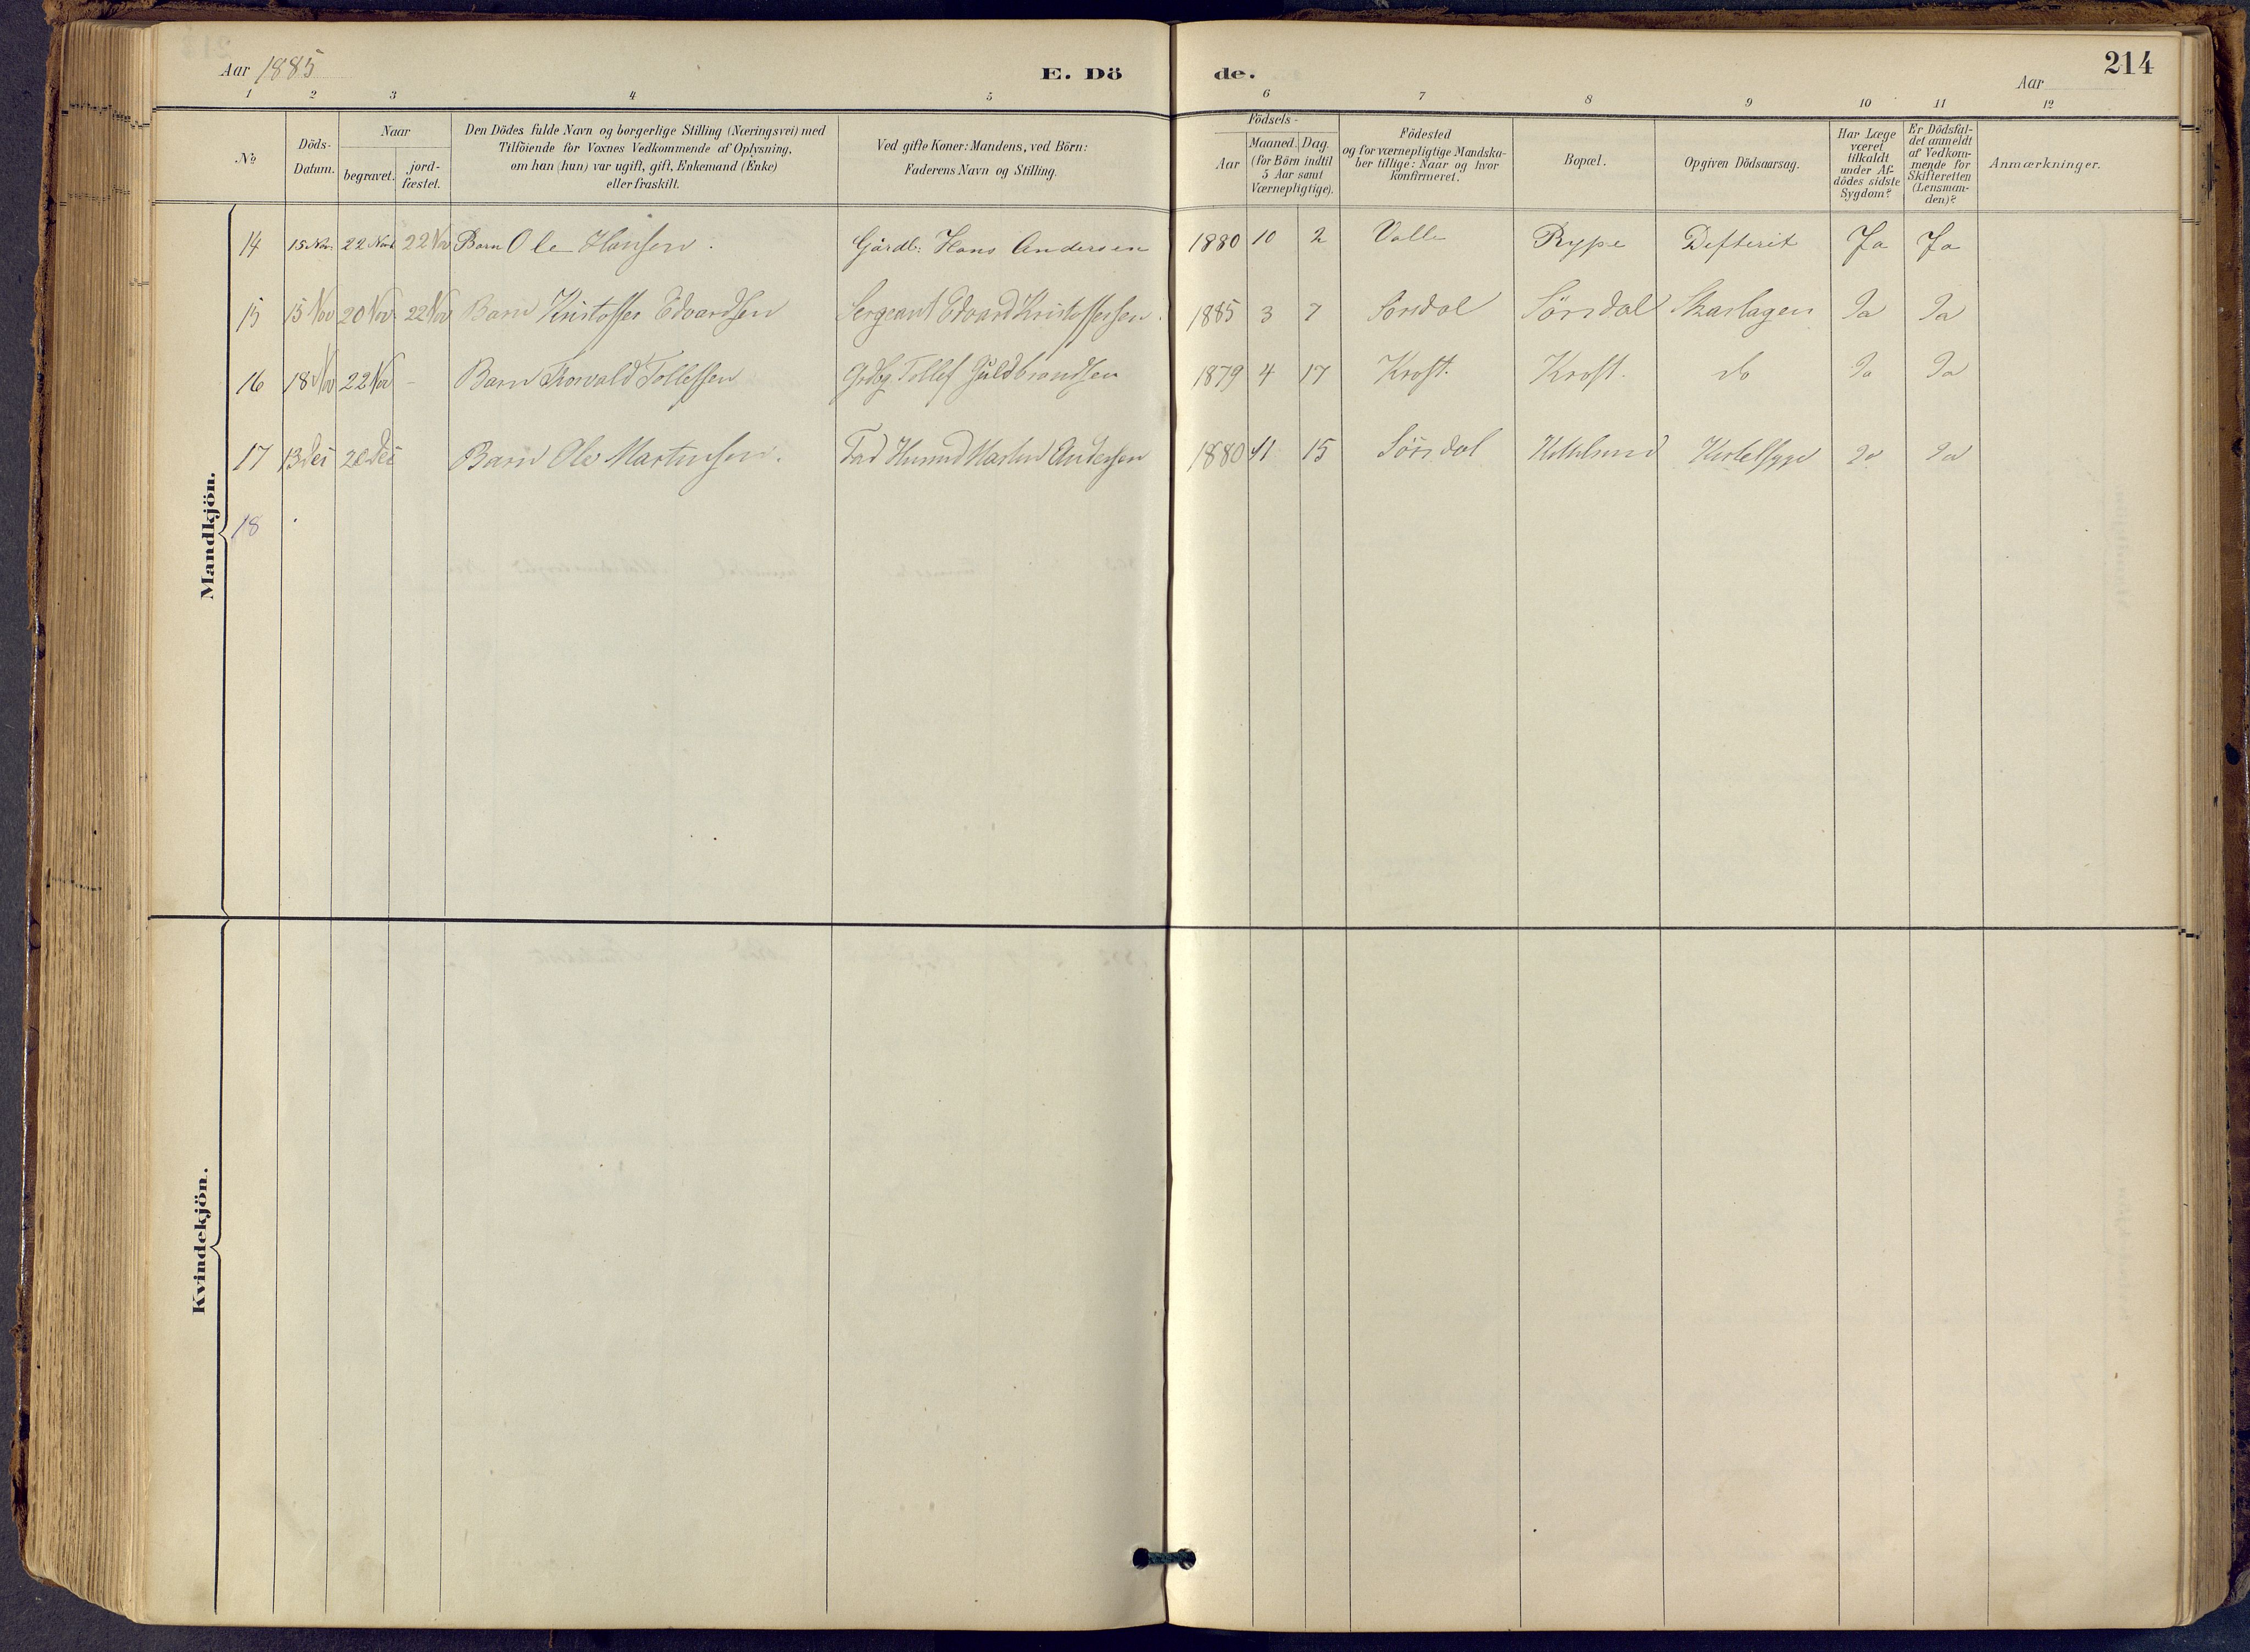 Aar 1885
E. Dö
de.
214
Aar
1 2 3 4 5 6 7 8 9 10 11 12
No
Döds-Datum.
Naar
begravet.
jord-fæstet.
Den Dödes fulde Navn og borgerlige Stilling (Næringsvei) med
Tilföiende for Voxnes Vedkommende af Oplysning,
om han (hun) var ugift, gift, Enkemand (Enke)
eller fraskilt.
Ved gifte Koner: Mandens, ved Börn:
Faderens Navn og Stilling.
Födsels-
Aar
Maaned. Dag.
(for Börn indtil
5 Aar samt
Værnepligtige).
Födested
og for værnepligtige Mandska-
ber tillige: Naar og hvor
konfirmeret.
Bopæl.
Opgiven Dödsaarsag.
Har Læge
været
tilkaldt
under Af-
dödes sidste
Sygdom?
Er Dödsfal-
det anmeldt
af Vedkom-
mende for
Skifteretten
(Lensman-
den)?
Anmærkninger.
Mandkjön.
14 15 Nov. 22 Novb 22 Nov Barn Ole Hansen. Gårdb: Hans Andersen 1880 10 2 Valle Rype Defterit Ja Ja
15 15 Nov 20 Nov 22 Nov Barn Kristoffer Edvardsen Sergeant Edvard Kristoffersen. 1885 3 7 Sörsdal Sörsdal Skarlagen Ja Ja
16 18 Nov 22 Nov - Barn Thorvald Tollefsen Grdbg. Tollef Guldbrandsen 1879 4 17 Kroft. Kroft. do Ja Ja
17 13 Dec 20 Dec Barn Ole Martinsen. Fad Husmd Martin Andersen 1880 11 15 Sörsdal Ja Ja
18
Kvindekjön.